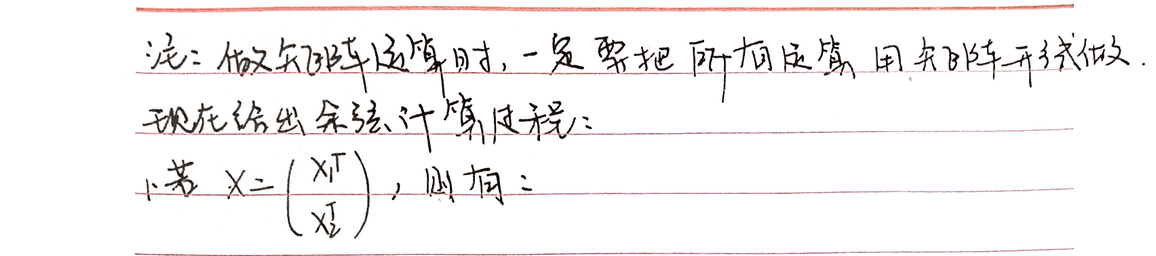 注：做矩阵运算时，一定要把所有运算用矩阵形式做.
现在给出余弦计算过程：
1、若 X=(X₁ᵀ
X₂ᵀ)，则有：